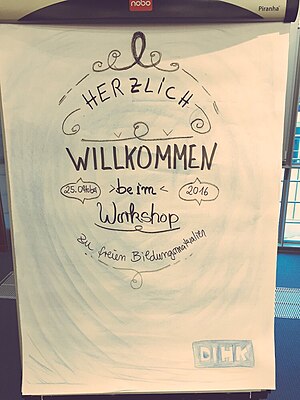 nobo
Piranha
HERZLICH
WILLKOMMEN
25. Oktober >beim< 2016
Workshop
zu freien Bildungsmaterialien
DIHK